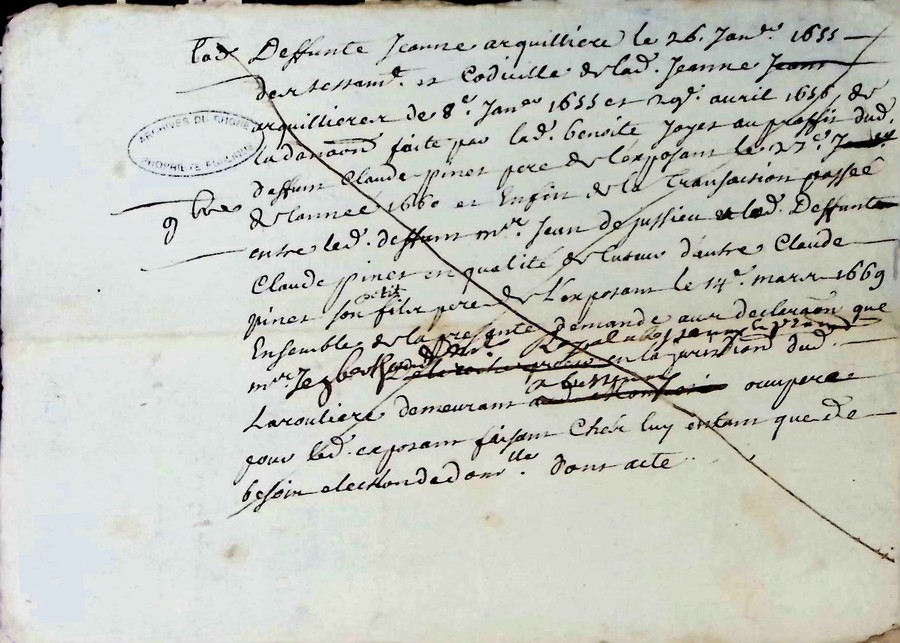 lad. Deffunte Jeanne arquilliere le 26. Janer. 1655
des testamt. et Codicille de lad. Jeanne
arquilliere des 8e. Janer 1655 et 29e. avril 1656 de
ARCHIVES DU RHONE
PROPRIÉTÉ PUBLIQUE
la dona͠on faite par lad. benoite Joyet au proffit dud.
deffunt Claude pinet pere de l'exposant le 27e.
de lannee 1660 et Enfin de la Transaction passeé
9bre
entre led. deffunt mr. Jean de jussieu et lad. Deffunte
Claude pinet en qualité de tuteur d'autre Claude
pinet son petit fils pere de L'exposant le 14e. mars 1669
Ensemble de la presente demande avec declara͠on que
mre. en la jurisdion dud.
Larouliere demeurant occupera
pour led. exposant faisant Chés luy entant que de
besoin election de domlle. dont acte